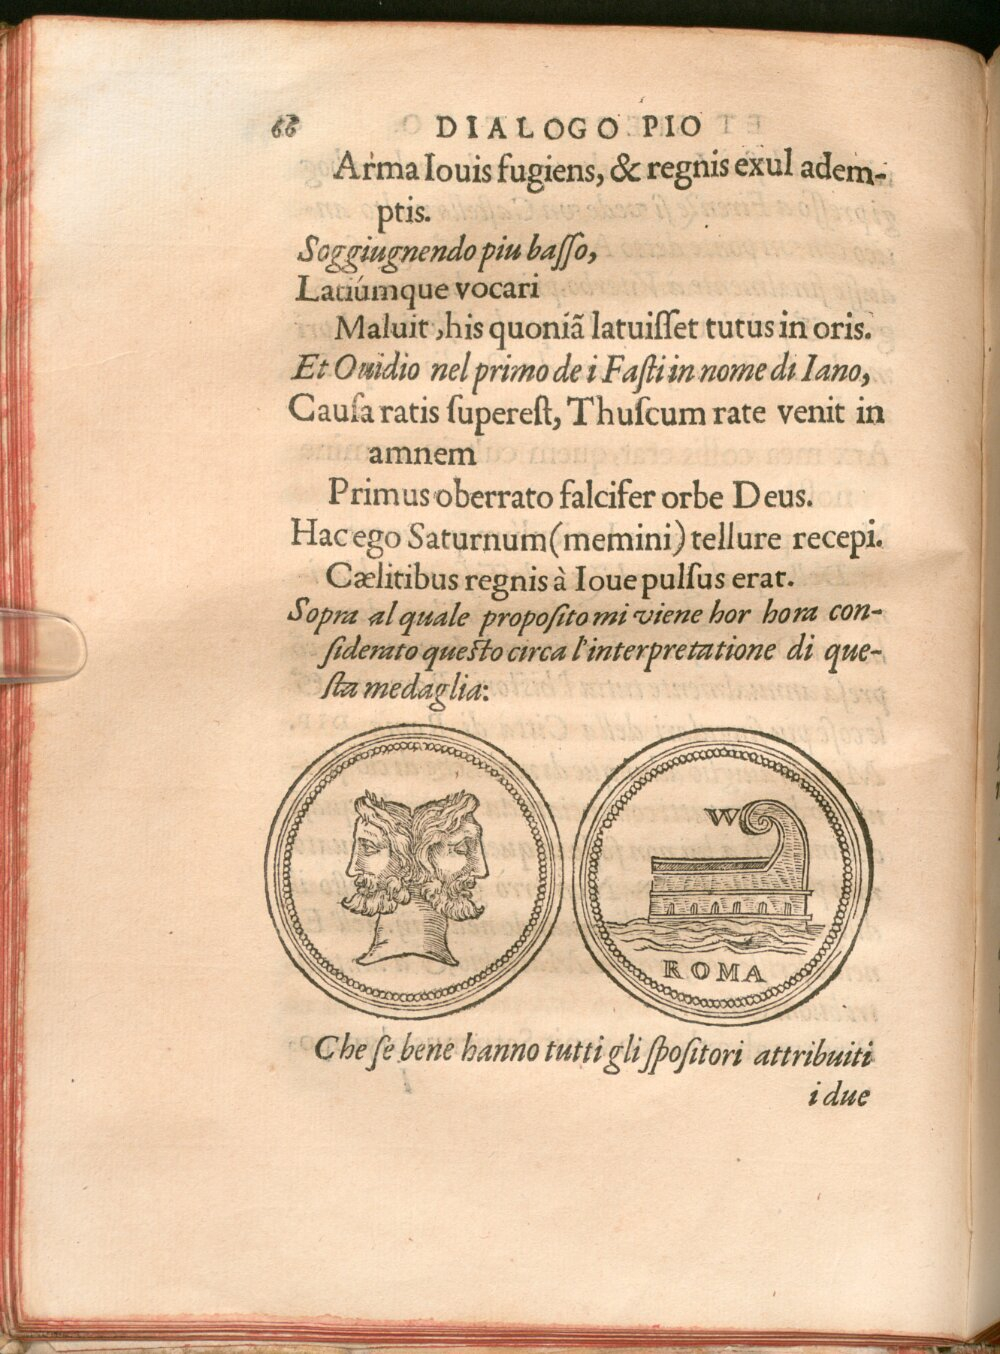 66 DIALOGO PIO
Arma Iouis fugiens, & regnis exul adem-
ptis.
Soggiugnendo piu baſſo,
Latiúmque vocari
Maluit, his quoniã latuiſſet tutus in oris.
Et Ouidio nel primo de i Faſti in nome di Iano,
Cauſa ratis ſupereſt, Thuſcum rate venit in
amnem
Primus oberrato falcifer orbe Deus.
Hac ego Saturnum (memini) tellure recepi.
Cælitibus regnis à Ioue pulſus erat.
Sopra al quale propoſito mi viene hor hora con-
ſiderato queſto circa l'interpretatione di que-
ſta medaglia:
W
ROMA
Che ſe bene hanno tutti gli ſpoſitori attribuiti
i due